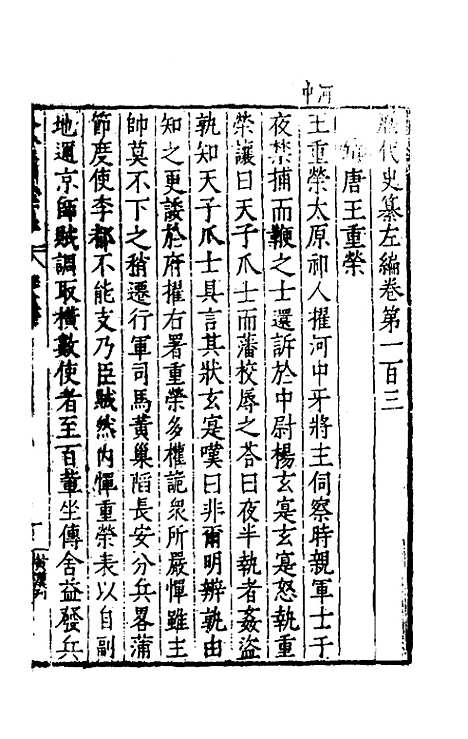 河中
歷代史纂左編卷第一百三
唐王重榮
王重榮太原祁人擢河中牙將主伺察時親軍士于
夜禁捕而鞭之士還訴於中尉楊玄寔玄寔怒執重
榮讓曰天子爪士而藩校辱之荅曰夜半執者姦盜
孰知天子爪士具言其狀玄寔嘆曰非爾明辨孰由
知之更諉於府擢右署重榮多權詭衆所嚴憚雖主
帥莫不下之稍遷行軍司馬黃巢陷長安分兵畧蒲
節度使李都不能支乃臣賊然内憚重榮表以自副
地邇京師賊調取橫數使者至百輩坐傳舍益發兵